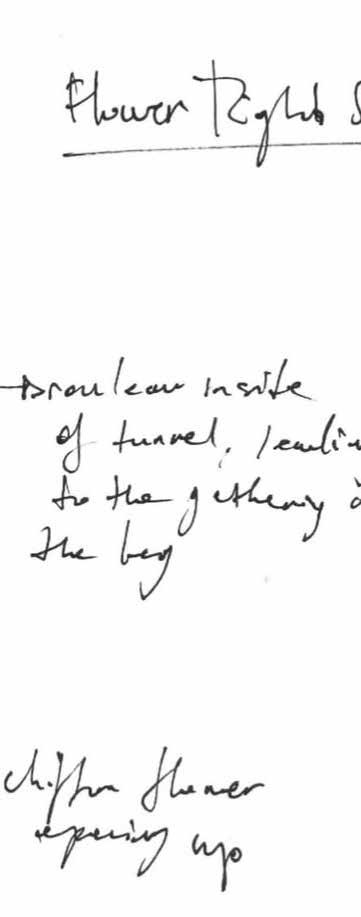 Flower Rights S
rouleau inside
of tunnel, leadin
to the gathering o
the bag
chiffon flower
opening up